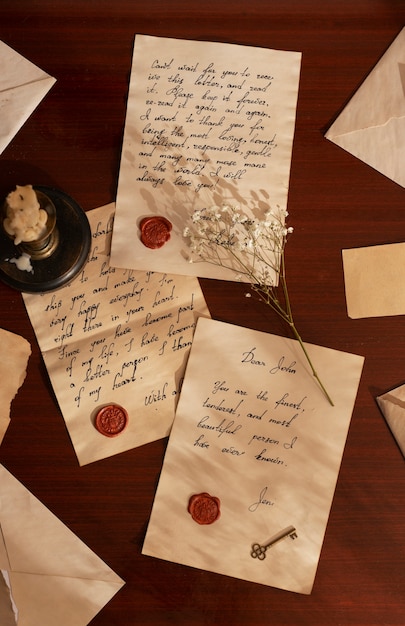 Can't wait for you to rece-
ive this letter, and read
it. Please keep it forever,
re-read it again and again.
I want to thank you for
being the most loving, honest,
intelligent, responsible, gentle
and many many more more
in the world. I will
always love you!
ship you and make
very happy everyday. I'm
right there in your heart.
Since you have become part
of my life, I have become
a better person. I thank
of my heart.
With a
Dear John
You are the finest,
tenderest, and most
beautiful person I
have ever known.
Jen.